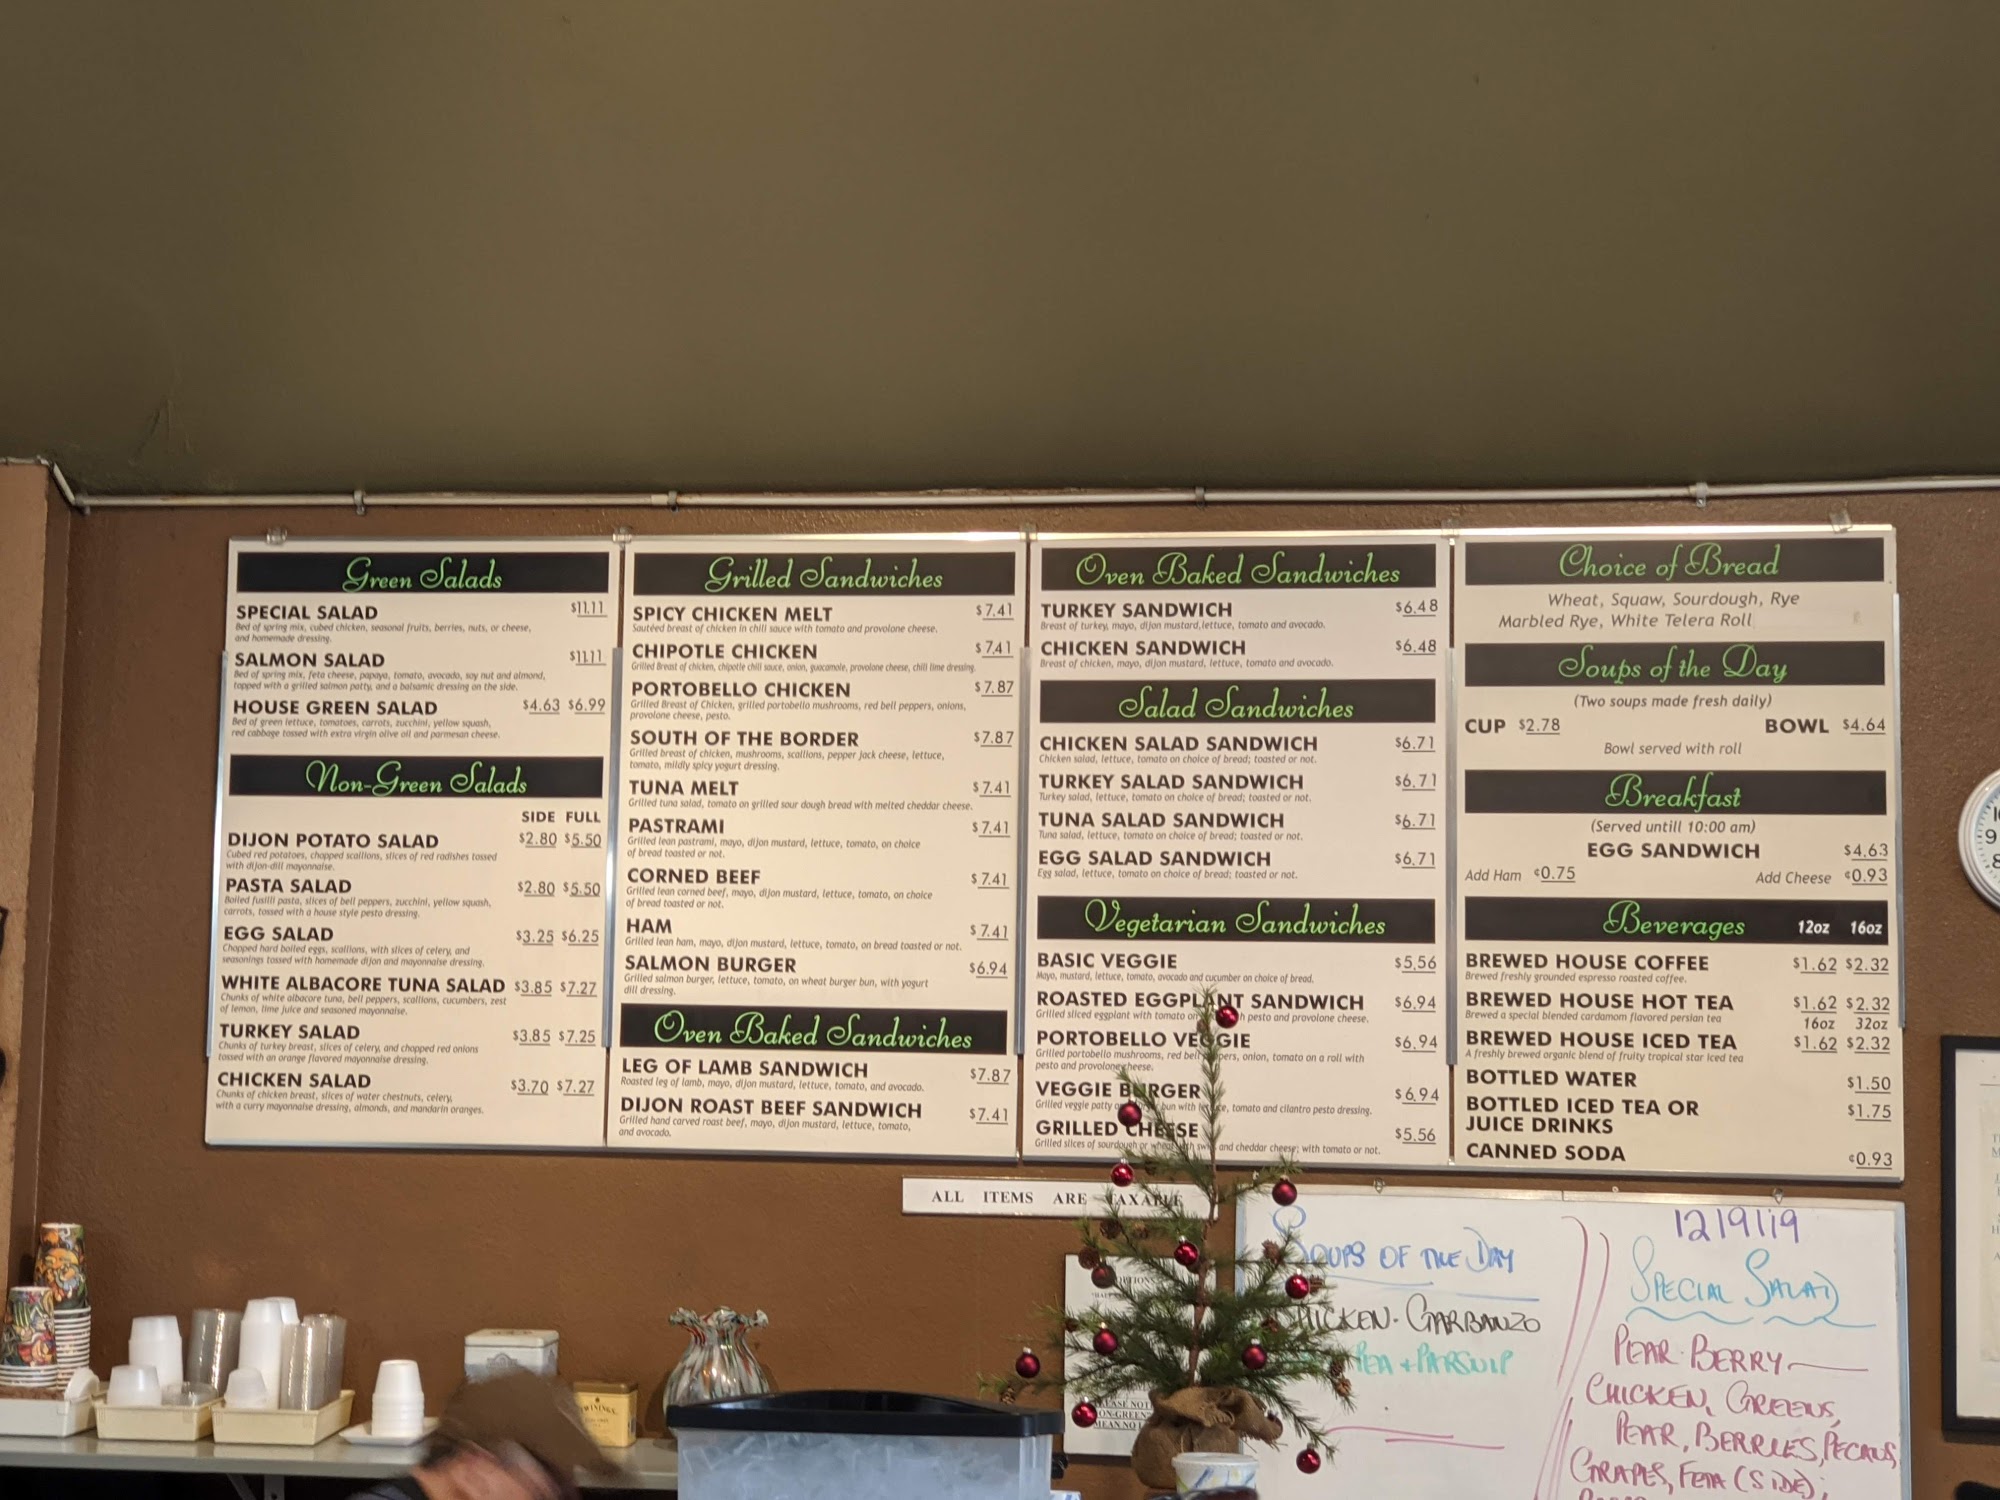 Green Salads
SPECIAL SALAD $11.11
Bed of spring mix, cubed chicken, seasonal fruits, berries, nuts, or cheese,
and homemade dressing.
SALMON SALAD $11.11
Bed of spring mix, feta cheese, papaya, tomato, avocado, soy nut and almond,
topped with a grilled salmon patty, and a balsamic dressing on the side.
HOUSE GREEN SALAD $4.63 $6.99
Bed of green lettuce, tomatoes, carrots, zucchini, yellow squash,
red cabbage tossed with extra virgin olive oil and parmesan cheese.
Non-Green Salads
SIDE FULL
DIJON POTATO SALAD $2.80 $5.50
Cubed red potatoes, chopped scallions, slices of red radishes tossed
with dijon-dill mayonnaise.
PASTA SALAD $2.80 $5.50
Boiled fusilli pasta, slices of bell peppers, zucchini, yellow squash,
carrots, tossed with a house style pesto dressing.
EGG SALAD $3.25 $6.25
Chopped hard boiled eggs, scallions, with slices of celery, and
seasonings tossed with homemade dijon and mayonnaise dressing.
WHITE ALBACORE TUNA SALAD $3.85 $7.27
Chunks of white albacore tuna, bell peppers, scallions, cucumbers, zest
of lemon, lime juice and seasoned mayonnaise.
TURKEY SALAD $3.85 $7.25
Chunks of turkey breast, slices of celery, and chopped red onions
tossed with an orange flavored mayonnaise dressing.
CHICKEN SALAD $3.70 $7.27
Chunks of chicken breast, slices of water chestnuts, celery,
with a curry mayonnaise dressing, almonds, and mandarin oranges.
Grilled Sandwiches
SPICY CHICKEN MELT $7.41
Sautéed breast of chicken in chili sauce with tomato and provolone cheese.
CHIPOTLE CHICKEN $7.41
Grilled Breast of chicken, chipotle chili sauce, onion, guacamole, provolone cheese, chili lime dressing.
PORTOBELLO CHICKEN $7.87
Grilled Breast of Chicken, grilled portobello mushrooms, red bell peppers, onions,
provolone cheese, pesto.
SOUTH OF THE BORDER $7.87
Grilled breast of chicken, mushrooms, scallions, pepper jack cheese, lettuce,
tomato, mildly spicy yogurt dressing.
TUNA MELT $7.41
Grilled tuna salad, tomato on grilled sour dough bread with melted cheddar cheese.
PASTRAMI $7.41
Grilled lean pastrami, mayo, dijon mustard, lettuce, tomato, on choice
of bread toasted or not.
CORNED BEEF $7.41
Grilled lean corned beef, mayo, dijon mustard, lettuce, tomato, on choice
of bread toasted or not.
HAM $7.41
Grilled lean ham, mayo, dijon mustard, lettuce, tomato, on bread toasted or not.
SALMON BURGER $6.94
Grilled salmon burger, lettuce, tomato, on wheat burger bun, with yogurt
dill dressing.
Oven Baked Sandwiches
LEG OF LAMB SANDWICH $7.87
Roasted leg of lamb, mayo, dijon mustard, lettuce, tomato, and avocado.
DIJON ROAST BEEF SANDWICH $7.41
Grilled hand carved roast beef, mayo, dijon mustard, lettuce, tomato,
and avocado.
Oven Baked Sandwiches
TURKEY SANDWICH $6.48
Breast of turkey, mayo, dijon mustard, lettuce, tomato and avocado.
CHICKEN SANDWICH $6.48
Breast of chicken, mayo, dijon mustard, lettuce, tomato and avocado.
Salad Sandwiches
CHICKEN SALAD SANDWICH $6.71
Chicken salad, lettuce, tomato on choice of bread; toasted or not.
TURKEY SALAD SANDWICH $6.71
Turkey salad, lettuce, tomato on choice of bread; toasted or not.
TUNA SALAD SANDWICH $6.71
Tuna salad, lettuce, tomato on choice of bread; toasted or not.
EGG SALAD SANDWICH $6.71
Egg salad, lettuce, tomato on choice of bread; toasted or not.
Vegetarian Sandwiches
BASIC VEGGIE $5.56
Mayo, mustard, lettuce, tomato, avocado and cucumber on choice of bread.
ROASTED EGGPLANT SANDWICH $6.94
Grilled sliced eggplant with tomato on pesto and provolone cheese.
PORTOBELLO VEGGIE $6.94
Grilled portobello mushrooms, red bell peppers, onion, tomato on a roll with
pesto and provolone cheese.
VEGGIE BURGER $6.94
Grilled veggie patty bun with lettuce, tomato and cilantro pesto dressing.
GRILLED CHEESE $5.56
Grilled slices of sourdough or wheat with and cheddar cheese; with tomato or not.
Choice of Bread
Wheat, Squaw, Sourdough, Rye
Marbled Rye, White Telera Roll
Soups of the Day
(Two soups made fresh daily)
CUP $2.78 BOWL $4.64
Bowl served with roll
Breakfast
(Served untill 10:00 am)
EGG SANDWICH $4.63
Add Ham ¢0.75 Add Cheese ¢0.93
Beverages 12oz 16oz
BREWED HOUSE COFFEE $1.62 $2.32
Brewed freshly grounded espresso roasted coffee.
BREWED HOUSE HOT TEA $1.62 $2.32
Brewed a special blended cardamom flavored persian tea
16oz 32oz
BREWED HOUSE ICED TEA $1.62 $2.32
A freshly brewed organic blend of fruity tropical star iced tea
BOTTLED WATER $1.50
BOTTLED ICED TEA OR $1.75
JUICE DRINKS
CANNED SODA ¢0.93
ALL ITEMS ARE TAXABLE
SOUPS OF THE DAY
CHICKEN-GARBANZO
PEA + PARSNIP
12/9/19
SPECIAL SALAD
PEAR-BERRY
CHICKEN, GREENS,
PEAR, BERRIES, PECANS,
GRAPES, FETA (SIDE);
9
8